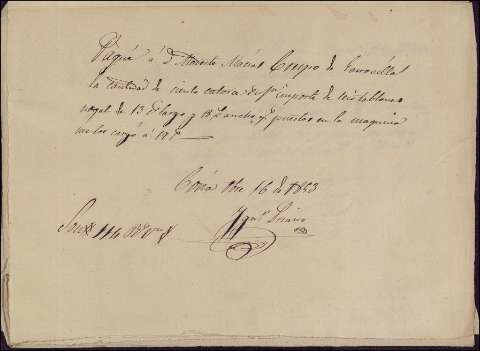 Pagué á D. Modesto Macias Crespo de Garrovillas
la cantidad de ciento catorce rs. pr. importe de seis tablones
nogal de 13 ps. largo y 13 ancho, y puestos en la maquina
me los cargó á 19 rs.
16 de 1853
Son 114 rs. vn.